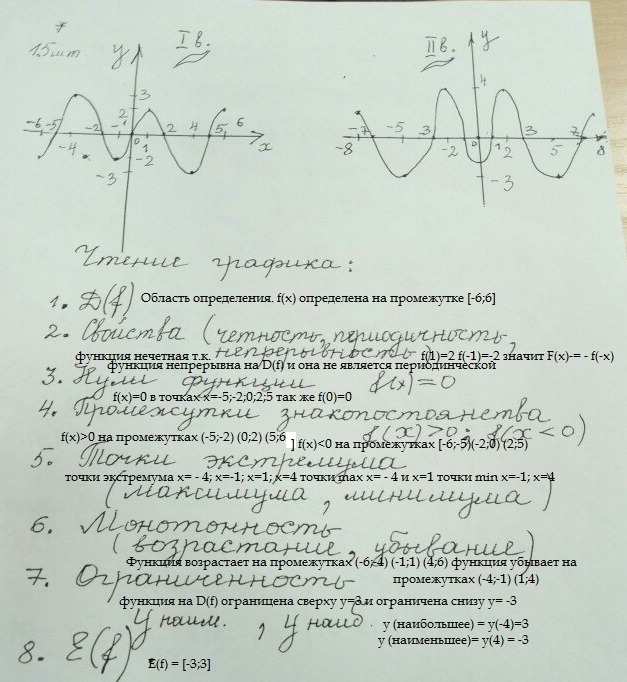 15 шт
I в.
II в.
y
y
3
4
-6 -5 -2 -1 2 2 4 5 6
-8 -7 -5 3 0 1 3 7 8
-4 0 1 x
-2 2 5
-2
-3
-3
Чтение графика:
1. D(f) Область определения. f(x) определена на промежутке [-6;6]
2. Свойства (четность, периодичность,
непрерывность
функция нечетная т.к. f(1)=2 f(-1)=-2 значит F(x)-= - f(-x)
функция непрерывна на D(f) и она не является периодинческой
3. Нули функции f(x)=0
f(x)=0 в точках x=-5;-2;0;2;5 так же f(0)=0
4. Промежутки знакопостоянства
f(x)>0; f(x<0)
f(x)>0 на промежутках (-5;-2) (0;2) (5;6 ] f(x)<0 на промежутках [-6;-5)(-2;0) (2;5)
5. Точки экстремума
точки экстремума x= - 4; x=-1; x=1; x=4 точки max x= - 4 и x=1 точки min x=-1; x=4
(максимума, минимума)
6. Монотонность
(возрастание, убывание)
Функция возрастает на промежутках (-6;-4) (-1;1) (4;6) функция убывает на
промежутках (-4;-1) (1;4)
7. Ограниченность
функция на D(f) ограницена сверху y=3 и ограничена снизу y= -3
y наим. , y наиб.
y (наибольшее) = y(-4)=3
y (наименьшее)= y(4) = -3
8. E(f)
E(f) = [-3;3]